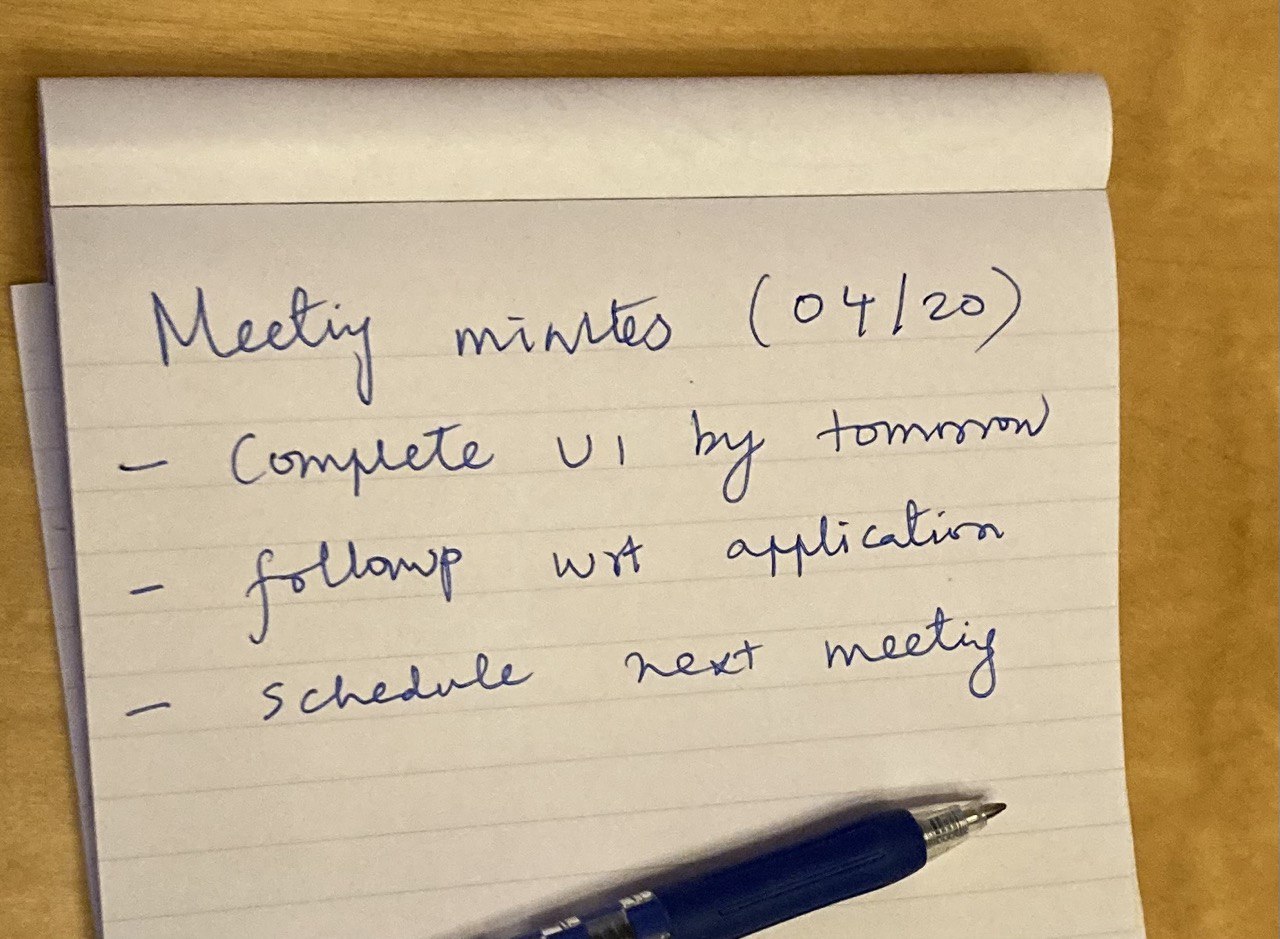 Meeting minutes (04/20)
- Complete UI by tomorrow
- followup wrt application
- schedule next meeting